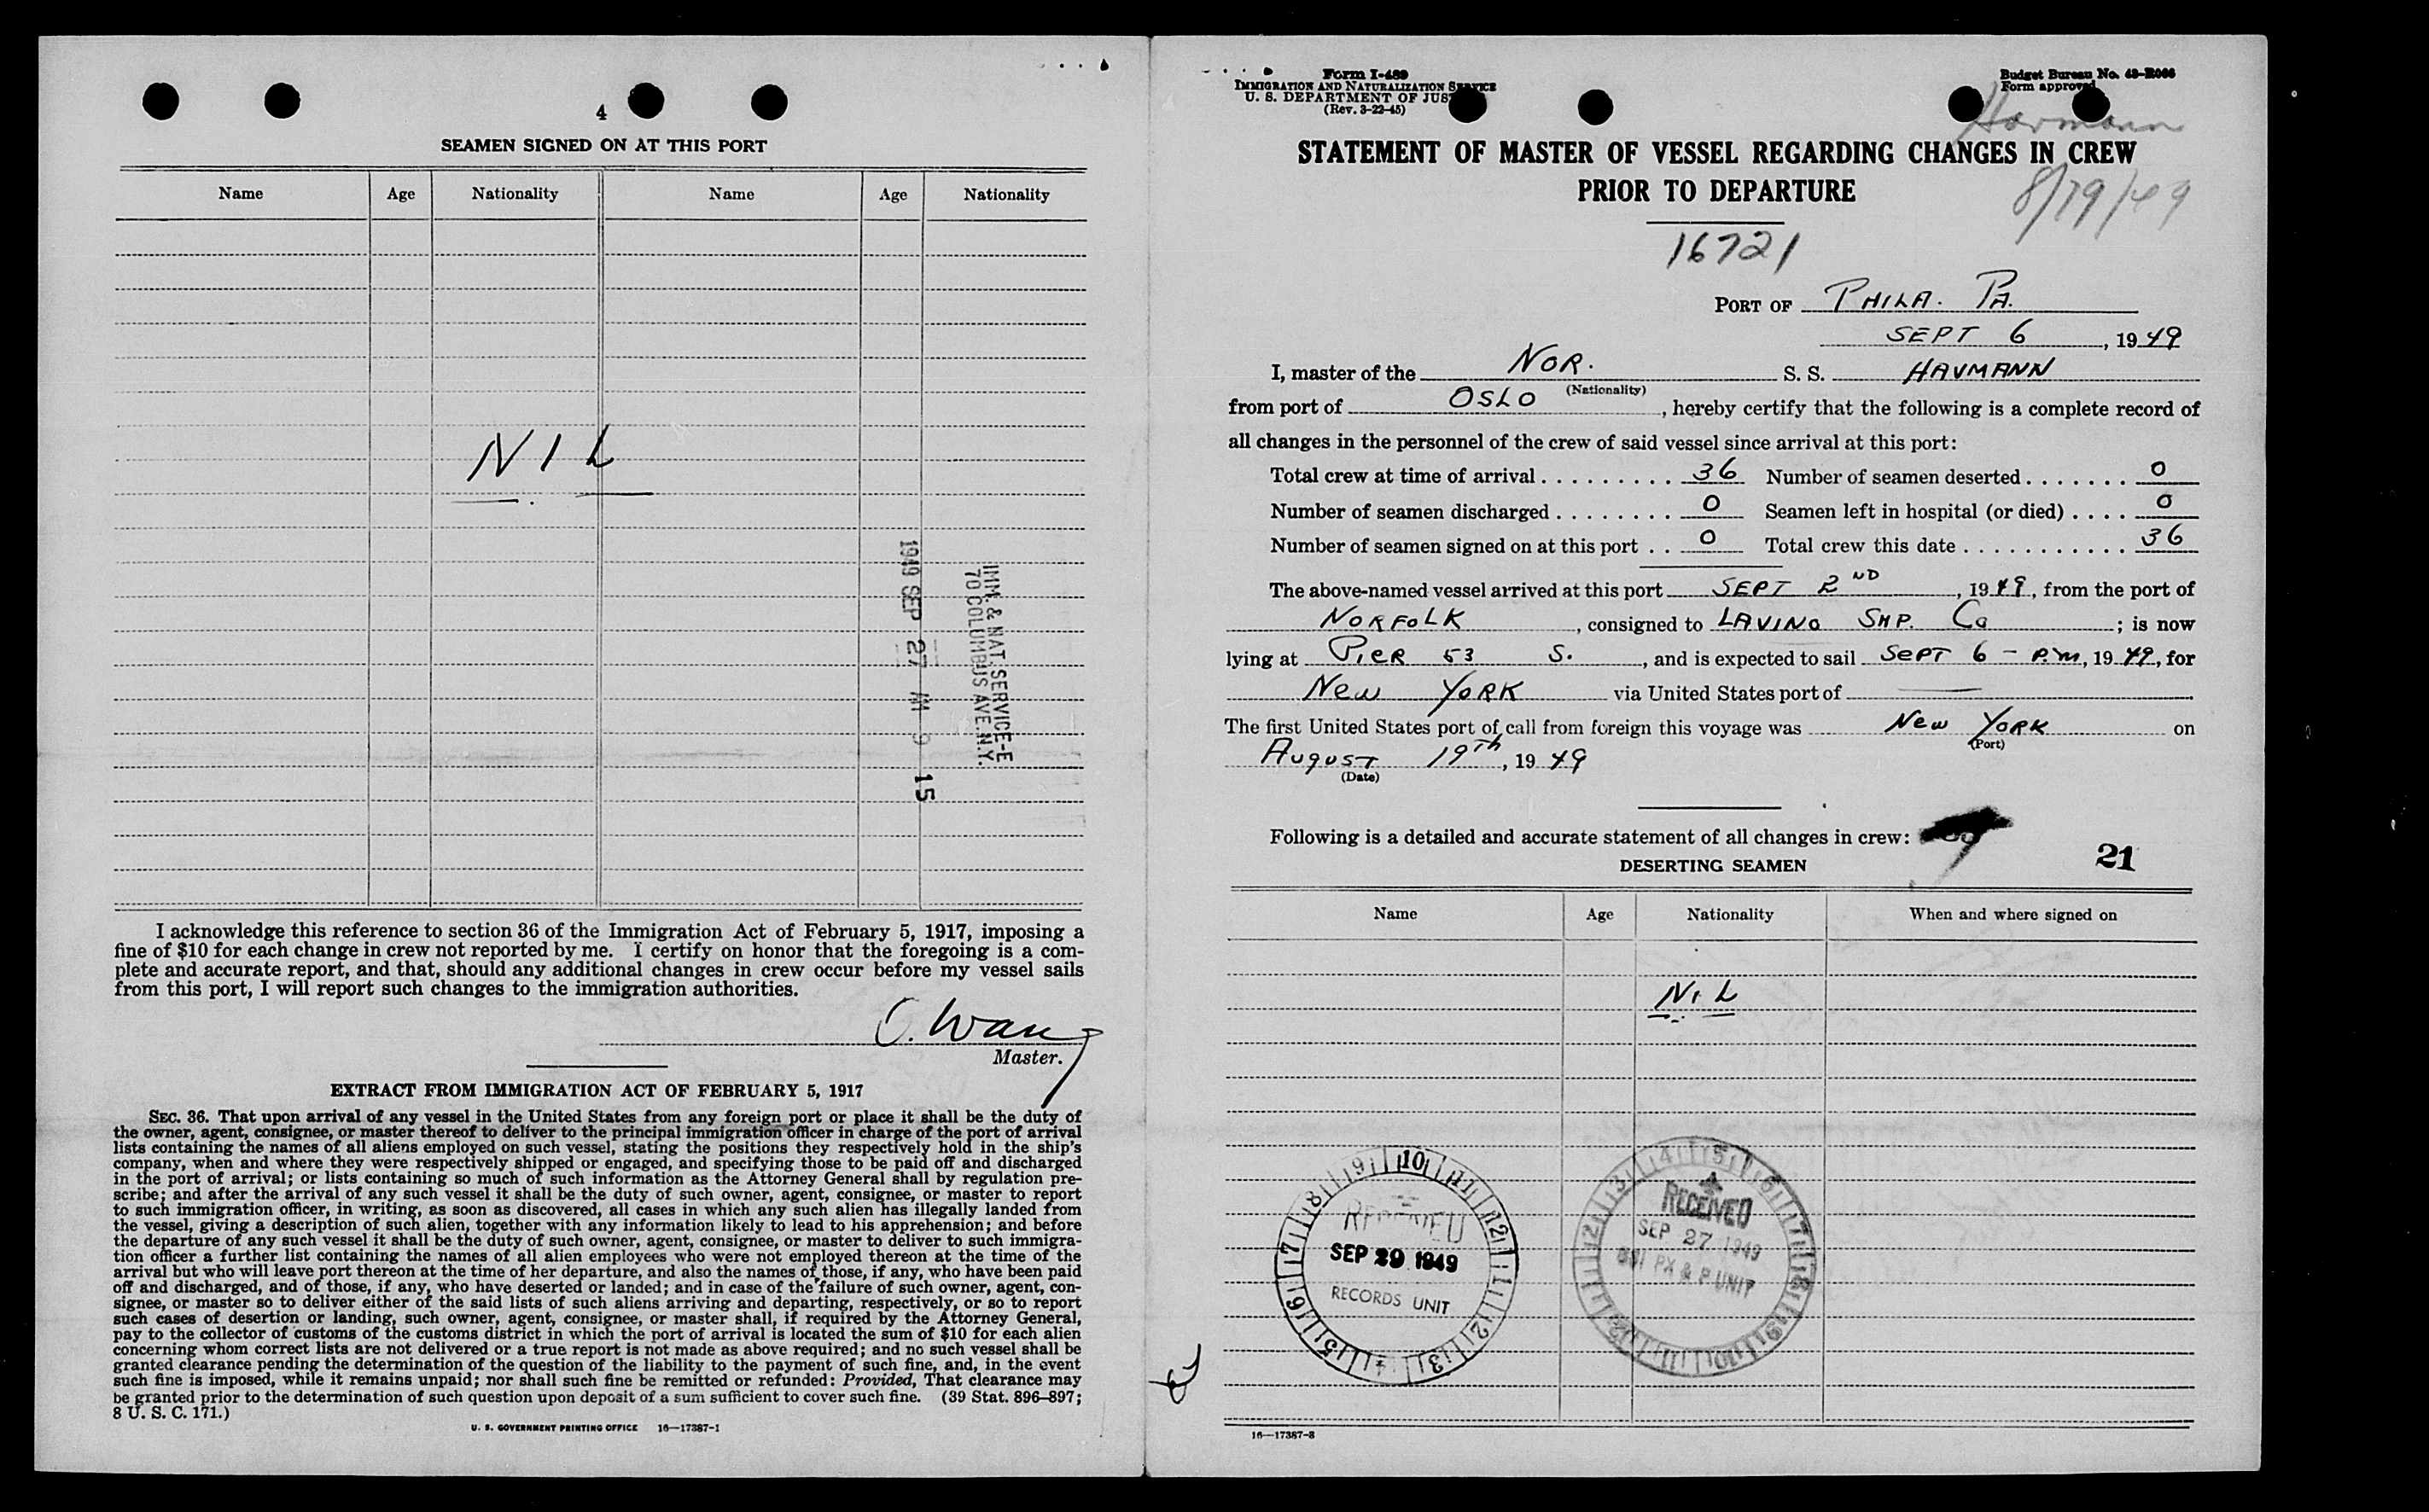 4
SEAMEN SIGNED ON AT THIS PORT
Name Age Nationality Name Age Nationality
NIL
1949 SEP 27 AM 9 15
IMM. & NAT. SERVICE-E
70 COLUMBUS AVE. N.Y.
I acknowledge this reference to section 36 of the Immigration Act of February 5, 1917, imposing a
fine of $10 for each change in crew not reported by me. I certify on honor that the foregoing is a com-
plete and accurate report, and that, should any additional changes in crew occur before my vessel sails
from this port, I will report such changes to the immigration authorities.
Master.
EXTRACT FROM IMMIGRATION ACT OF FEBRUARY 5, 1917
SEC. 36. That upon arrival of any vessel in the United States from any foreign port or place it shall be the duty of
the owner, agent, consignee, or master thereof to deliver to the principal immigration officer in charge of the port of arrival
lists containing the names of all aliens employed on such vessel, stating the positions they respectively hold in the ship's
company, when and where they were respectively shipped or engaged, and specifying those to be paid off and discharged
in the port of arrival; or lists containing so much of such information as the Attorney General shall by regulation pre-
scribe; and after the arrival of any such vessel it shall be the duty of such owner, agent, consignee, or master to report
to such immigration officer, in writing, as soon as discovered, all cases in which any such alien has illegally landed from
the vessel, giving a description of such alien, together with any information likely to lead to his apprehension; and before
the departure of any such vessel it shall be the duty of such owner, agent, consignee, or master to deliver to such immigra-
tion officer a further list containing the names of all alien employees who were not employed thereon at the time of the
arrival but who will leave port thereon at the time of her departure, and also the names of those, if any, who have been paid
off and discharged, and of those, if any, who have deserted or landed; and in case of the failure of such owner, agent, con-
signee, or master so to deliver either of the said lists of such aliens arriving and departing, respectively, or so to report
such cases of desertion or landing, such owner, agent, consignee, or master shall, if required by the Attorney General,
pay to the collector of customs of the customs district in which the port of arrival is located the sum of $10 for each alien
concerning whom correct lists are not delivered or a true report is not made as above required; and no such vessel shall be
granted clearance pending the determination of the question of the liability to the payment of such fine, and, in the event
such fine is imposed, while it remains unpaid; nor shall such fine be remitted or refunded: Provided, That clearance may
be granted prior to the determination of such question upon deposit of a sum sufficient to cover such fine. (39 Stat. 896–897;
8 U. S. C. 171.)
U. S. GOVERNMENT PRINTING OFFICE 16—17387-1
Form I-489
IMMIGRATION AND NATURALIZATION SERVICE
U. S. DEPARTMENT OF JUS
(Rev. 3-22-45)
Budget Bureau No. 43-R066
Form approved
STATEMENT OF MASTER OF VESSEL REGARDING CHANGES IN CREW
PRIOR TO DEPARTURE
8/19/49
16721
PORT OF PHILA. PA.
SEPT 6, 1949
I, master of the NOR. S. S. HAVMANN
(Nationality)
from port of OSLO, hereby certify that the following is a complete record of
all changes in the personnel of the crew of said vessel since arrival at this port:
Total crew at time of arrival 36 Number of seamen deserted 0
Number of seamen discharged 0 Seamen left in hospital (or died) 0
Number of seamen signed on at this port 0 Total crew this date 36
The above-named vessel arrived at this port SEPT 2ND, 1949, from the port of
NORFOLK, consigned to LAVINO SHP. Co; is now
lying at PIER 53 S., and is expected to sail SEPT 6 – P.M, 1949, for
NEW YORK via United States port of —
The first United States port of call from foreign this voyage was NEW YORK on
(Port)
AUGUST 19th, 1949
(Date)
Following is a detailed and accurate statement of all changes in crew:
DESERTING SEAMEN
21
Name Age Nationality When and where signed on
NIL
RECEIVED
SEP 29 1949
RECORDS UNIT
RECEIVED
SEP 27 1949
PX & P UNIT
16—17387-3